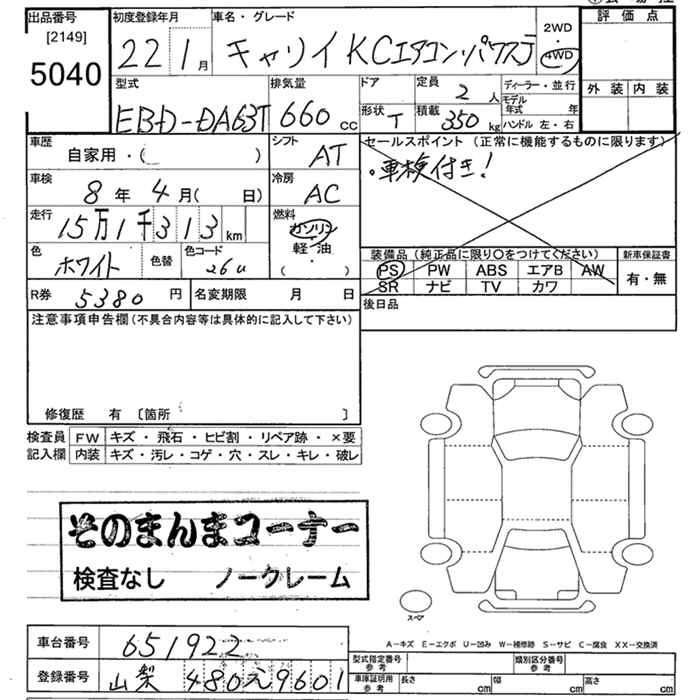 出品番号 初度登録年月 車名・グレード 2WD 評価点
[2149] 22 1月 キャリイKCエアコン・パワステ 4WD
5040 外装 内装
型式 排気量 ドア 定員 2人 ディーラー・並行
EBD-DA63T 660cc 形状 T 積載 350kg モデル年式 年
ハンドル 左・右
車歴 シフト セールスポイント(正常に機能するものに限ります)
自家用・( ) AT ・車検付き!
車検 冷房
8年4月( 日) AC
走行 燃料
15万1千313km ガソリン
色 色替 色コード 軽・油 装備品(純正品に限り〇をつけてください) 新車保証書
ホワイト 26U ( ) PS PW ABS エアB AW 有・無
SR ナビ TV カワ
R券 5380円 名変期限 月 日 後日品
注意事項申告欄(不具合内容等は具体的に記入して下さい)
修復歴 有 〔箇所 〕
検査員 FW キズ・飛石・ヒビ割・リペア跡・×要
記入欄 内装 キズ・汚レ・コゲ・穴・スレ・キレ・破レ
そのまんまコーナー
検査なし ノークレーム
スペア
車台番号 651922 A-キズ E-エクボ U-凹み W-補修跡 S-サビ C-腐食 XX-交換済
型式指定番号 参考 類別区分番号 参考
登録番号 山梨480え9601 車庫証明用 参考 長さ cm 幅 cm 高さ cm